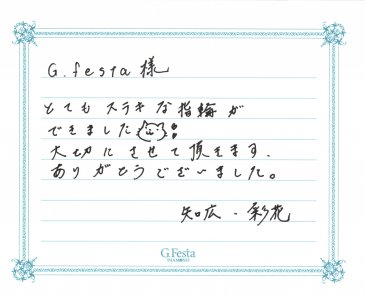 G.festa様
とてもステキな指輪が
できました!!
大切にさせて頂きます.
ありがとうございました。
知広・彩花
G.Festa
DIAMOND